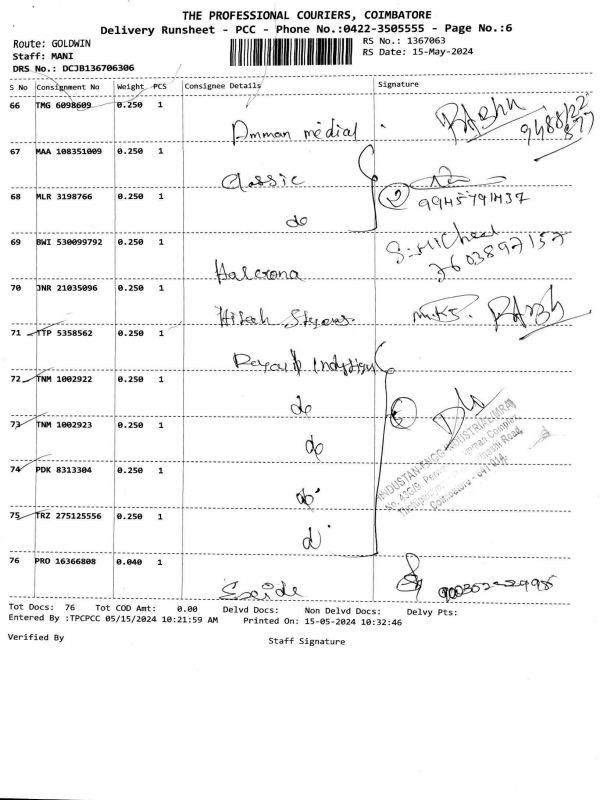 THE PROFESSIONAL COURIERS, COIMBATORE
Delivery Runsheet - PCC - Phone No.:0422-3505555 - Page No.:6
Route: GOLDWIN
Staff: MANI
DRS No.: DCJB136706306
RS No.: 1367063
RS Date: 15-May-2024
S No Consignment No Weight PCS Consignee Details Signature
66 TMG 6098609 0.250 1
Amman medial
67 MAA 108351009 0.250 1
Classic
9945791437
68 MLR 3198766 0.250 1
do
69 BWI 530099792 0.250 1
S. Micheal
7603897157
70 JNR 21035096 0.250 1
Hitech
71 TTP 5358562 0.250 1
72 TNM 1002922 0.250 1
do
73 TNM 1002923 0.250 1
do
74 PDK 8313304 0.250 1
do
75 TRZ 275125556 0.250 1
d
HINDUSTAN ENGG INDUSTRIAL
Coimbatore - 641 014.
76 PRO 16366808 0.040 1
Exide
Tot Docs: 76 Tot COD Amt: 0.00 Delvd Docs: Non Delvd Docs: Delvy Pts:
Entered By :TPCPCC 05/15/2024 10:21:59 AM Printed On: 15-05-2024 10:32:46
Verified By
Staff Signature